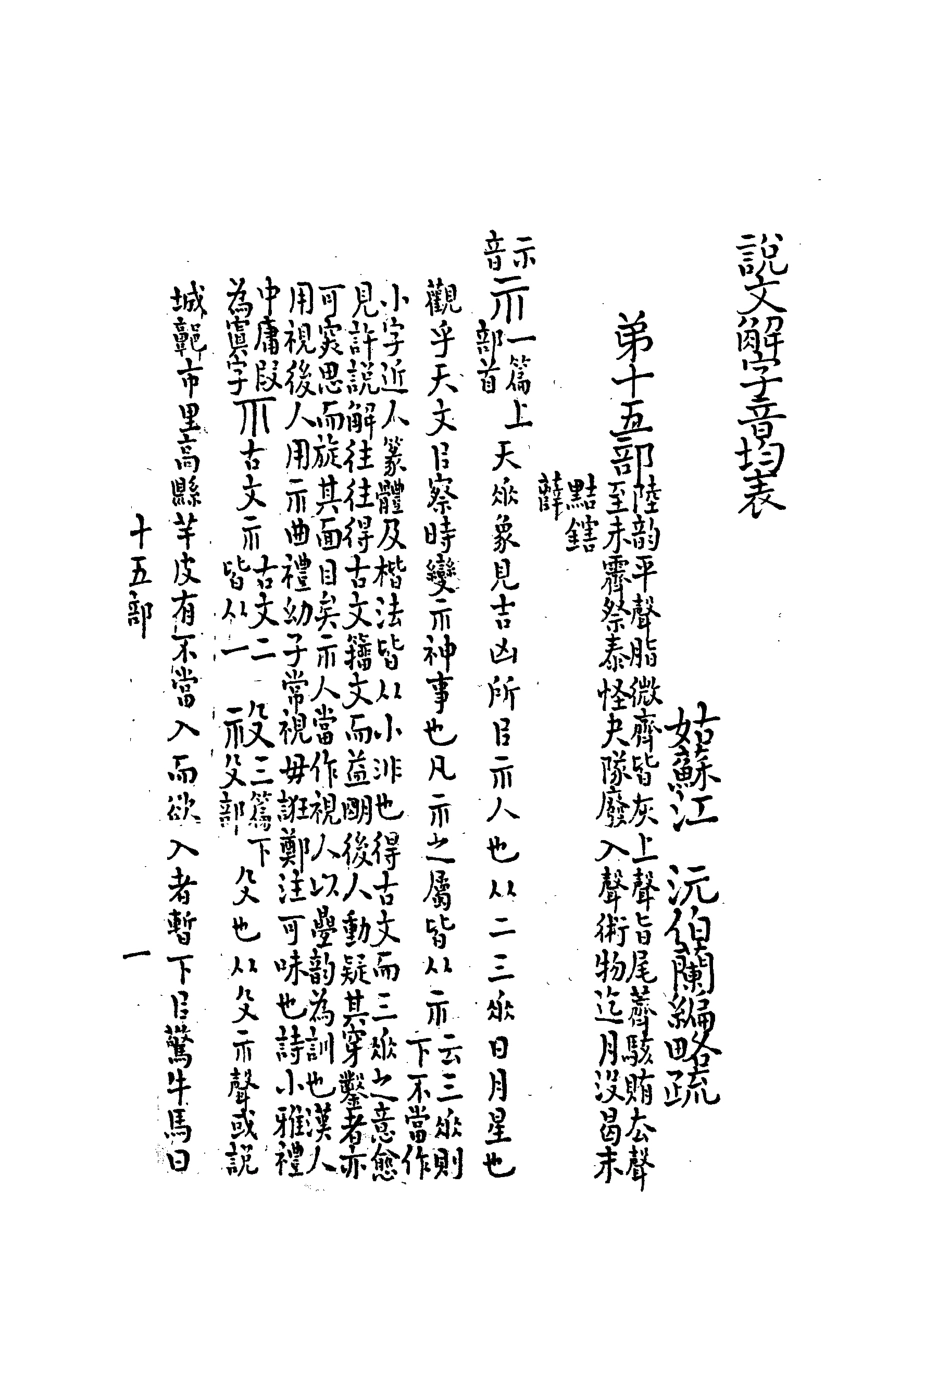 說文解字音均表
姑蘇江　沅伯蘭編略疏
弟十五部
陸韵平聲脂微齊皆灰上聲旨尾薺駭賄厺聲
至未霽祭泰怪夬隊廢入聲術物迄月没曷末
黠鎋
薛
示
音
示一篇上
部首
天𠂹象見吉凶所㠯示人也从二三𠂹日月星也
觀乎天文㠯察時變示神事也凡示之屬皆从示
云三𠂹則
下不當作
小字近人篆體及楷法皆从小非也得古文而三𠂹之意愈
見許說解往往得古文籒文而益明後人動疑其穿鑿者亦
可窔思而旋其面目矣示人當作視人以疊韵為訓也漢人
用視後人用示曲禮幼子常視毋誑鄭注可味也詩小雅禮
中庸叚
為寘字
𠀁古文示
古文二
皆从一
祋三篇下
示殳部
殳也从殳示聲或說
城𩫖市里高縣羊皮有不當入而欲入者暫下㠯驚牛馬曰
十五部
一